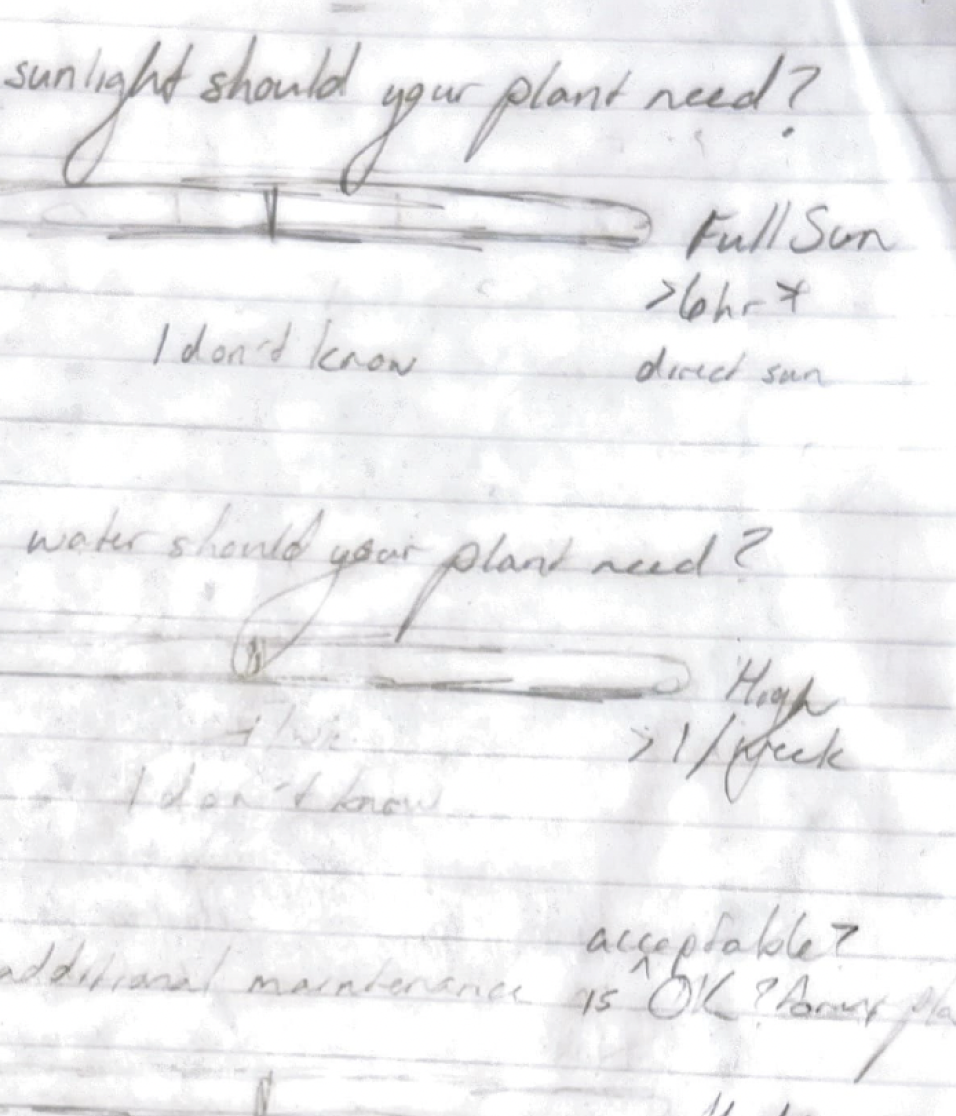 sunlight should your plant need?
Full Sun
>6hr*
I don't know
direct sun
water should your plant need?
High
>1/week
I don't know
acceptable?
additional maintenance is ^ OK?